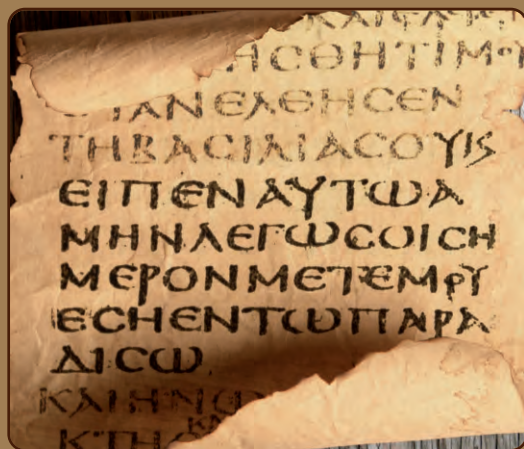 ΗCΘΗΤΙΜΟΥ
ΟΤΑΝΕΛΘΗCΕΝ
ΤΗΒΑCΙΛΙΑCΟΥΙC
ΕΙΠΕΝΑΥΤΩΑ
ΜΗΝΛΕΓΩCΟΙCΗ
ΜΕΡΟΝΜΕΤΕΜΟΥ
ΕCΗΕΝΤΩΠΑΡΑ
ΔΙCΩ
ΚΑΙΗΝΩ